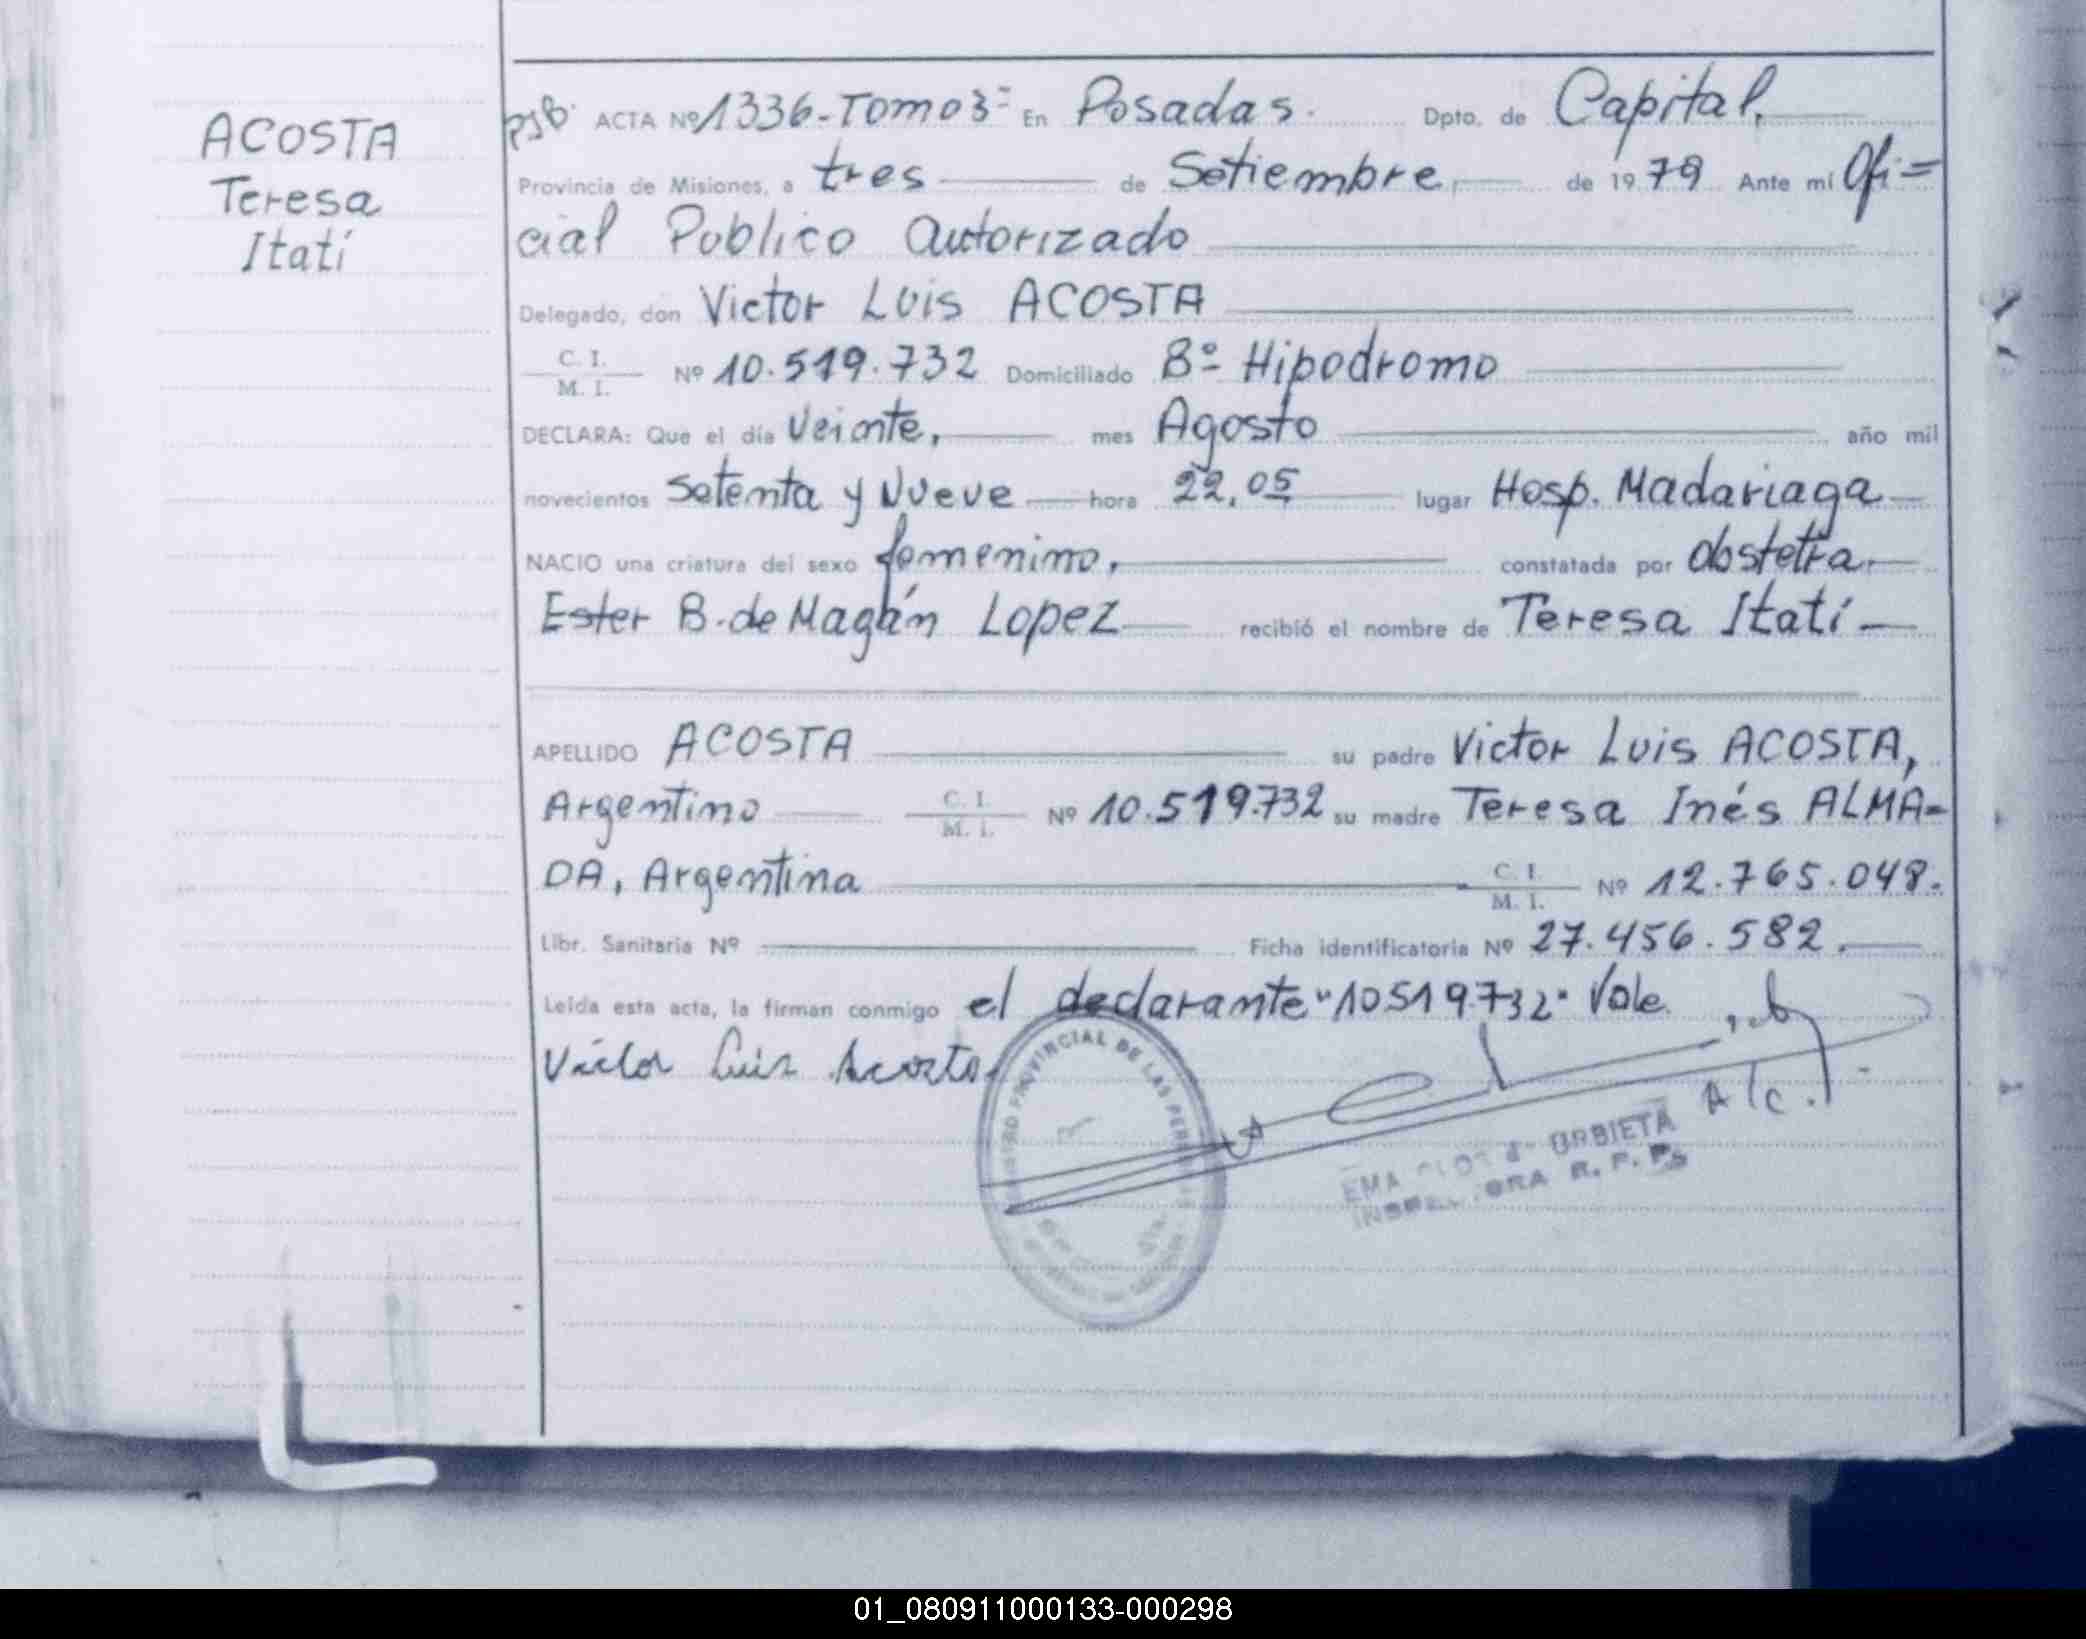 ACOSTA
Teresa
Itatí
ACTA Nº 1336-Tomo 3º En Posadas. Dpto. de Capital,
Provincia de Misiones, a tres de Setiembre de 1979 Ante mí Ofi=
cial Publico Autorizado
Delegado, don Victor Luis ACOSTA
C. I.
M. I. Nº 10.519.732 Domiciliado Bº Hipodromo
DECLARA: Que el día Veinte, mes Agosto año mil
novecientos Setenta y Nueve hora 22,05 lugar Hosp. Madariaga
NACIO una criatura del sexo femenino, constatada por Obstetra
Ester B. de Magán Lopez recibió el nombre de Teresa Itatí
APELLIDO ACOSTA su padre Victor Luis ACOSTA,
Argentino C. I. M. I. Nº 10.519.732 su madre Teresa Inés ALMA=
DA, Argentina C. I. M. I. Nº 12.765.048.
Libr. Sanitaria Nº Ficha identificatoria Nº 27.456.582.
Leída esta acta, la firman conmigo el declarante "10519.732" Vale
Victor Luis Acosta
REGISTRO PROVINCIAL DE LAS PER
A/c.
URBIETA
R. P. P.
01_080911000133-000298